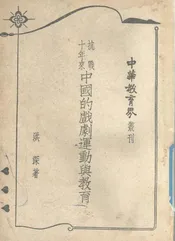 中華教育界叢刊
抗戰
十年來
中國的戲劇運動與教育
洪深著